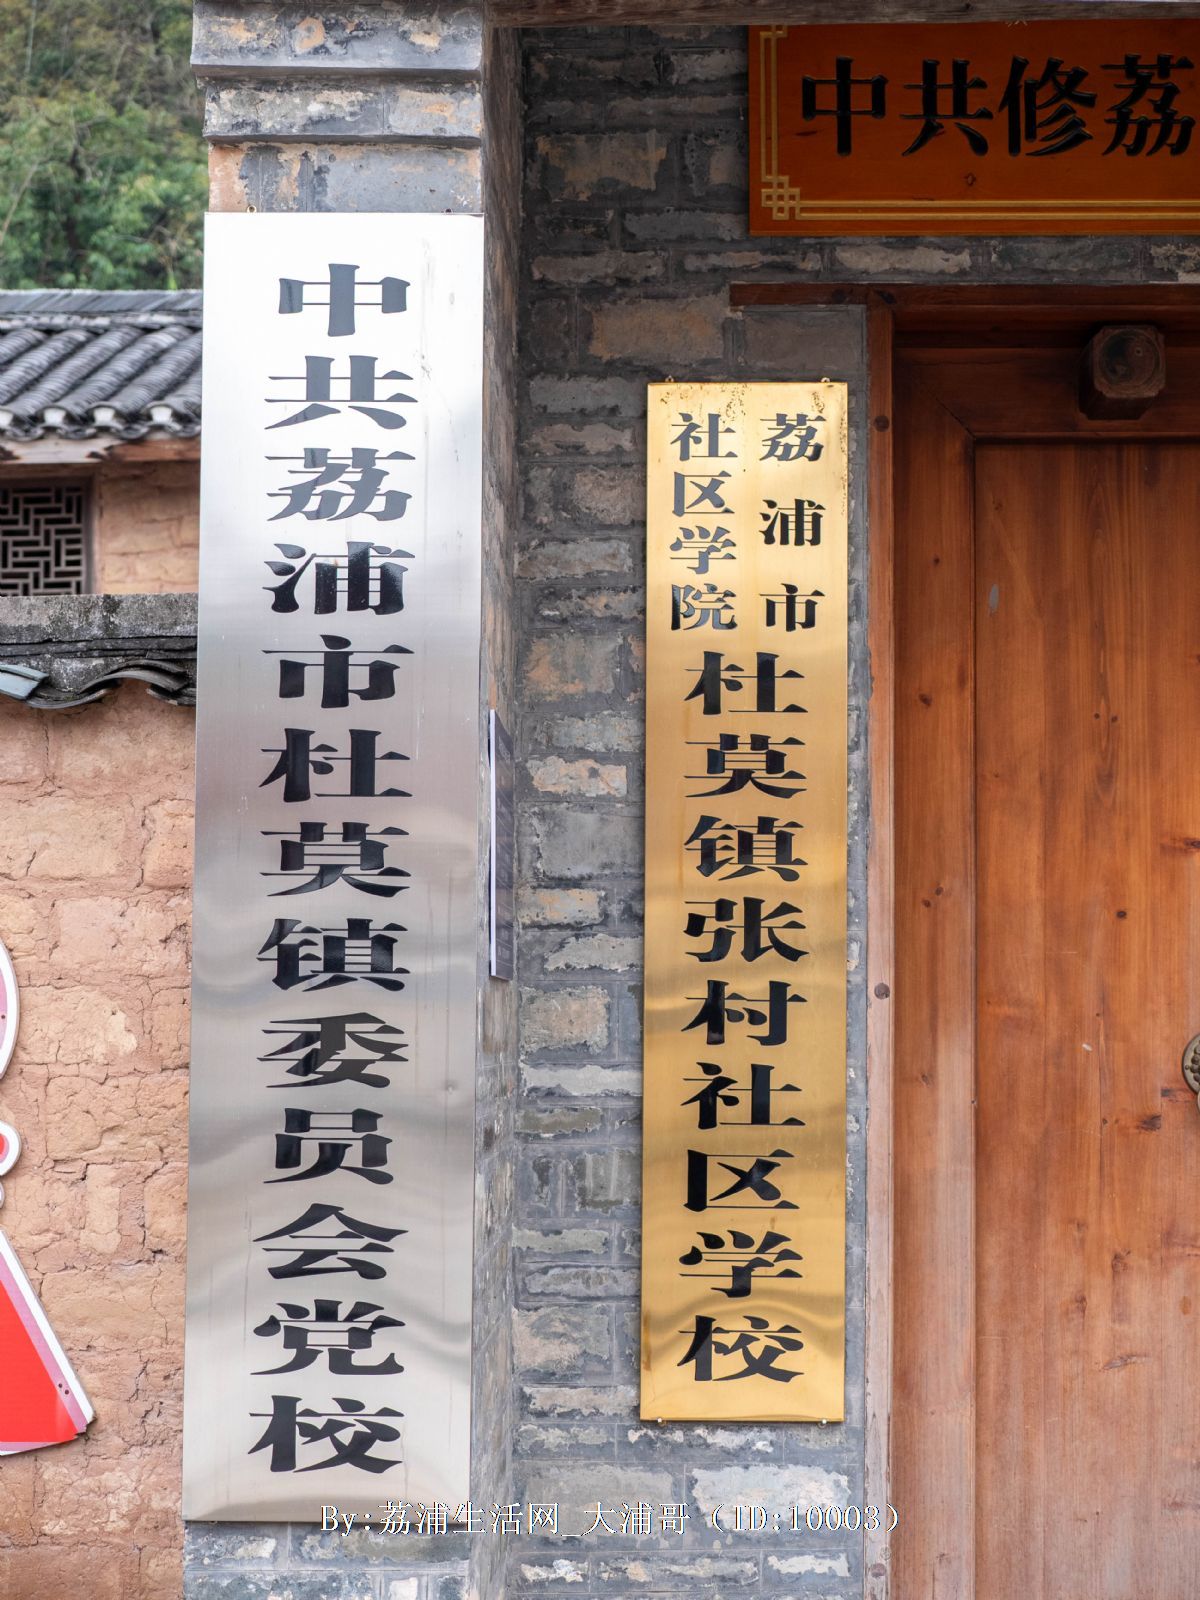 中共修荔
中共荔浦市杜莫镇委员会党校
荔浦市
社区学院
杜莫镇张村社区学校
By:荔浦生活网_大浦哥（ID:10003）